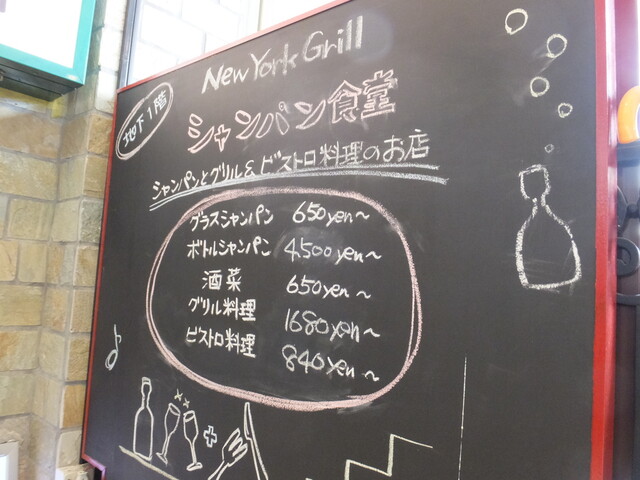 New York Grill
地下1階
シャンパン食堂
シャンパンとグリル&ビストロ料理のお店
グラスシャンパン 650yen~
ボトルシャンパン 4,500yen~
酒菜 650yen~
グリル料理 1680yen~
ビストロ料理 840yen~